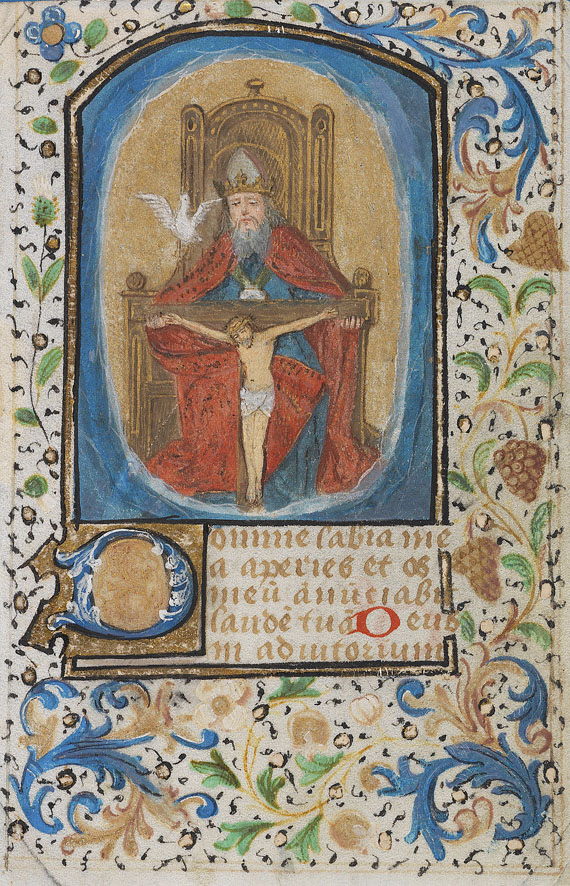 Domine labia me
a aperies et os
meū ānūciabit
laudē tuā Deus
in adiutorium